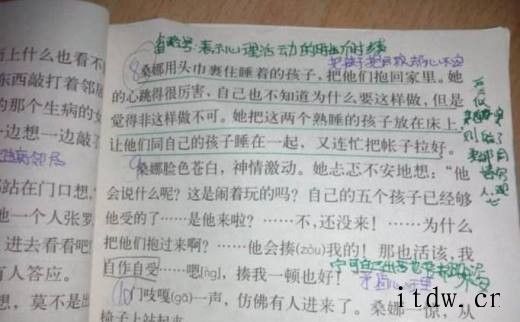 省略号:表示心理活动的时断时续
上什么也看不
东西敲打着邻居
的那个生病的女
一边想一边敲
站在门口想,
她一个人张罗
进去看看吧
有人答应。
想,莫不是出
⑧桑娜用头巾裹住睡着的孩子,把他们抱回家里。她
的心跳得很厉害,自己也不知道为什么要这样做,但是
觉得非这样做不可。她把这两个熟睡的孩子放在床上,
让他们同自己的孩子睡在一起,又连忙把帐子拉好。
⑨桑娜脸色苍白,神情激动。她忐忑不安地想:“他
会说什么呢?这是闹着玩的吗?自己的五个孩子已经够
他受的了……是他来啦?……不,还没来!……为什么
把他们抱过来啊?……他会揍(zòu)我的!那也活该,我
自作自受……嗯(ǹg),揍我一顿也好!
⑩门吱嘎(gā)一声,仿佛有人进来了。桑娜一惊,从
椅子上站起来
itdw.cr